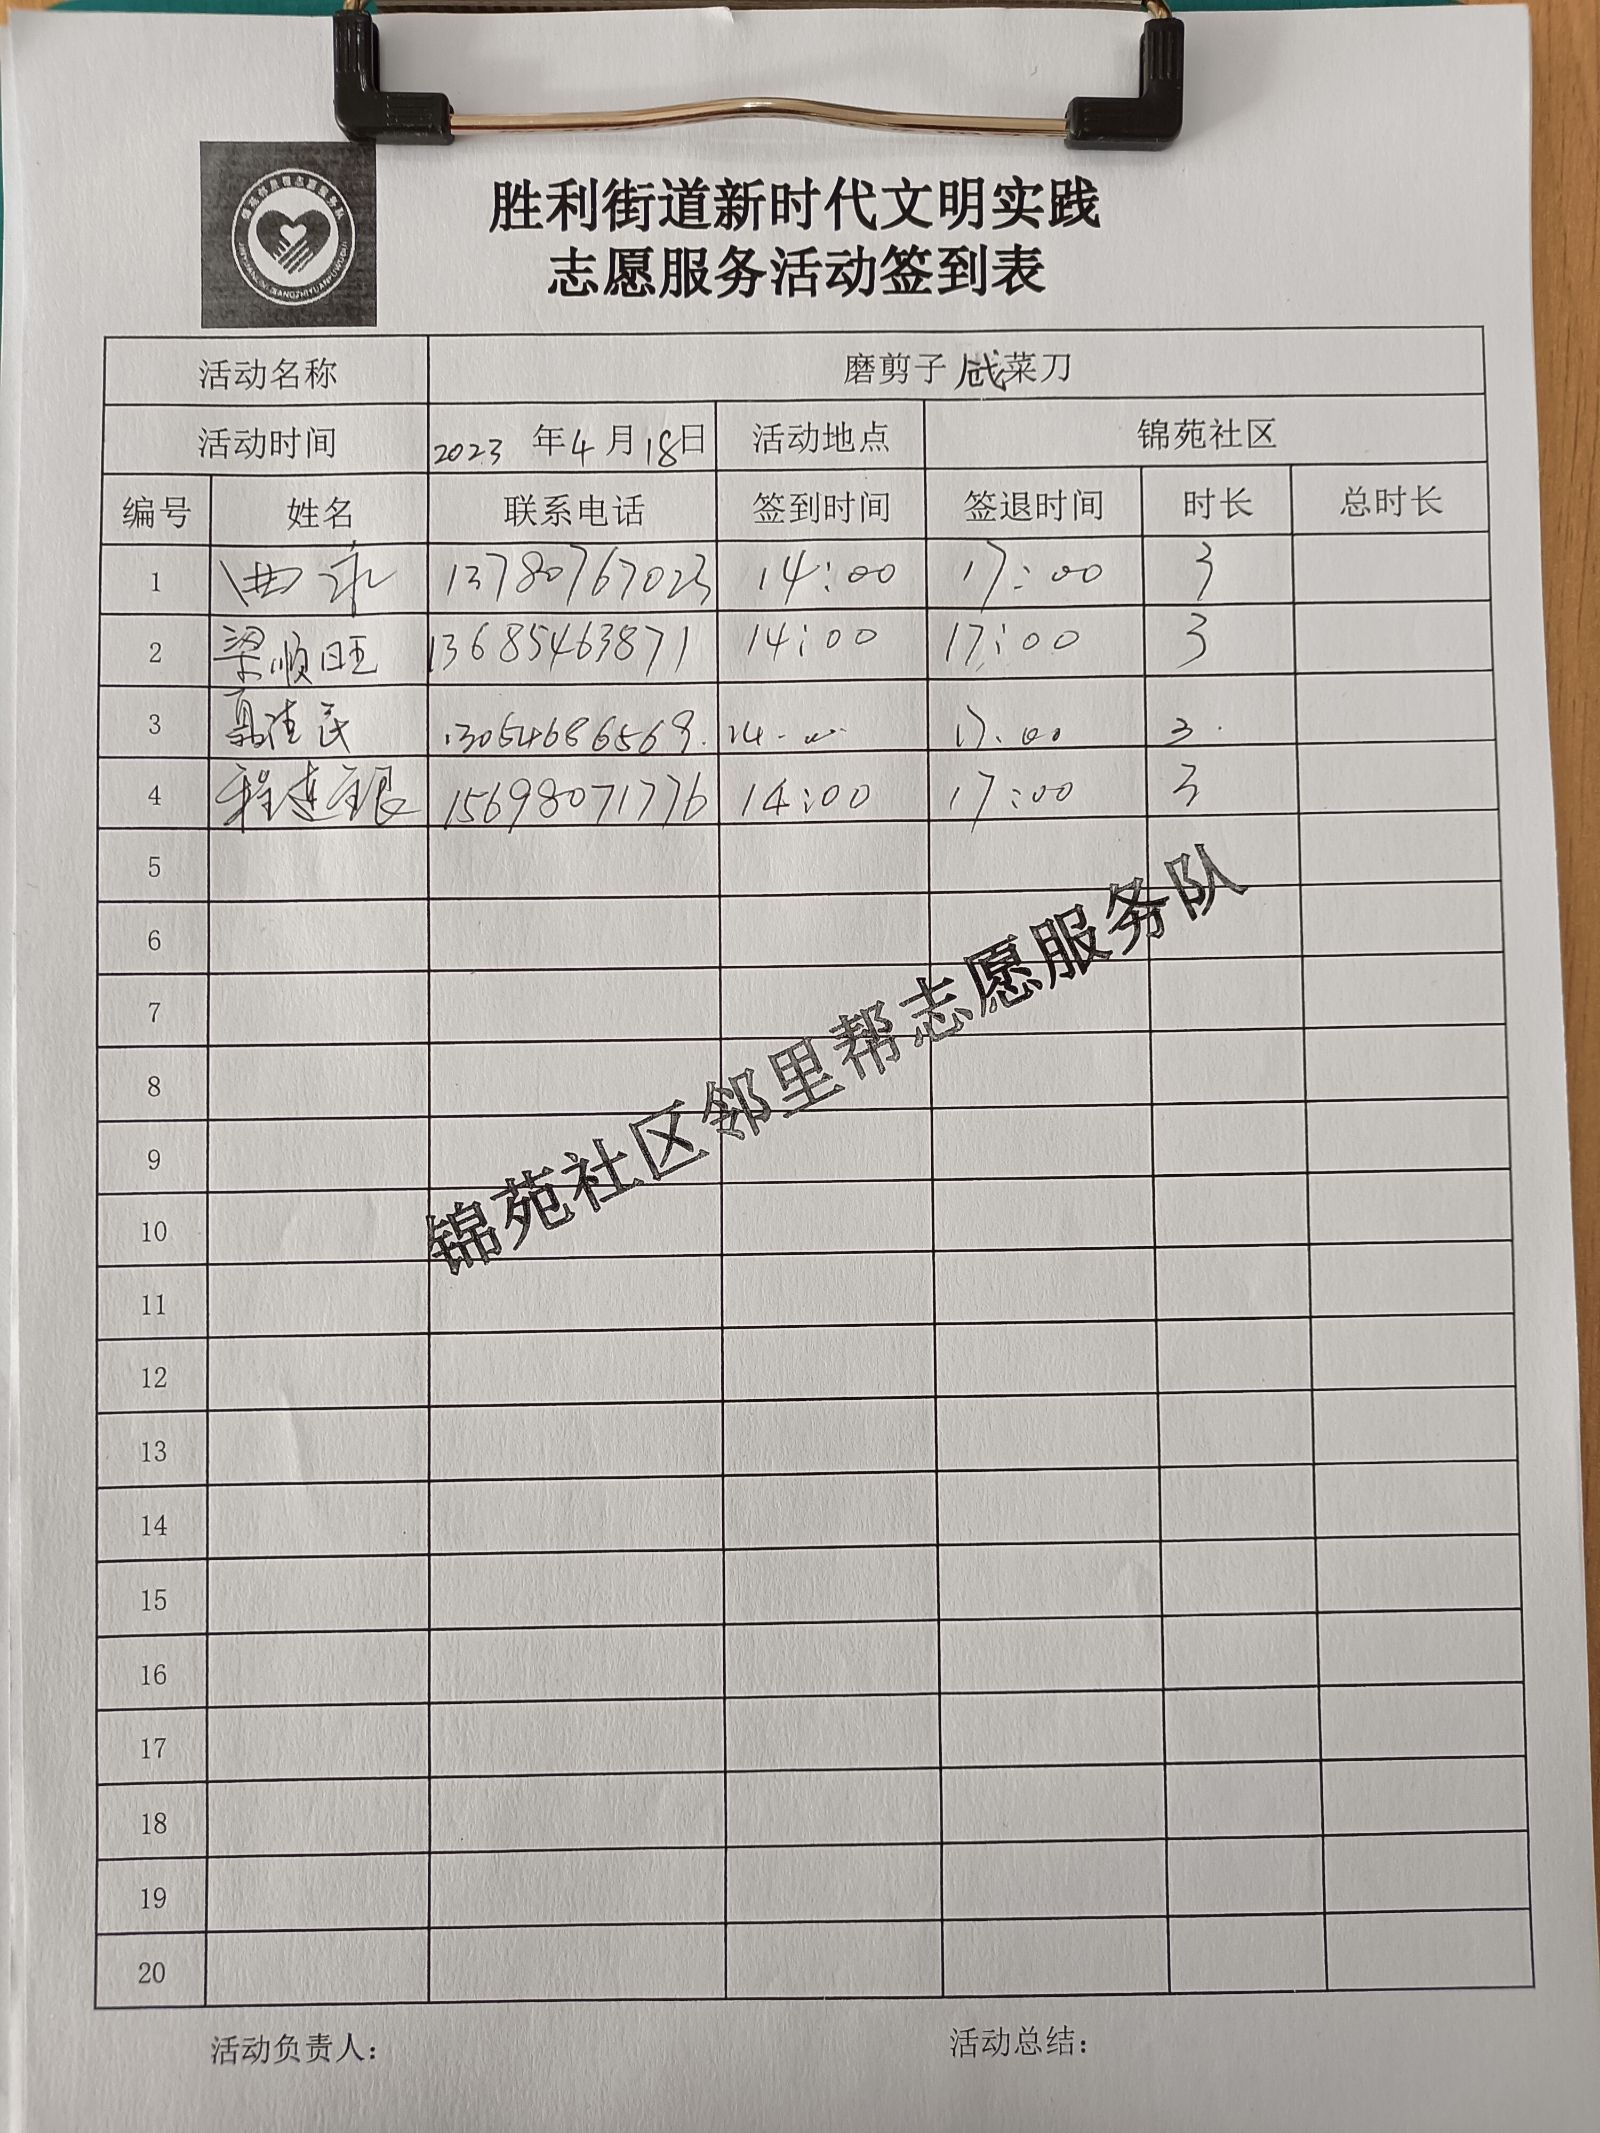 胜利街道新时代文明实践
志愿服务活动签到表
活动名称 磨剪子 戗菜刀
活动时间 2023 年 4 月 18 日 活动地点 锦苑社区
编号 姓名 联系电话 签到时间 签退时间 时长 总时长
1 13780767023 14:00 17:00 3
2 梁顺旺 13685463871 14:00 17:00 3
3 13054686569. 14. 17.00 3.
4 程连银 15698071776 14:00 17:00 3
5
6
7
8
9
10
11
12
13
14
15
16
17
18
19
20
锦苑社区邻里帮志愿服务队
活动负责人： 活动总结：